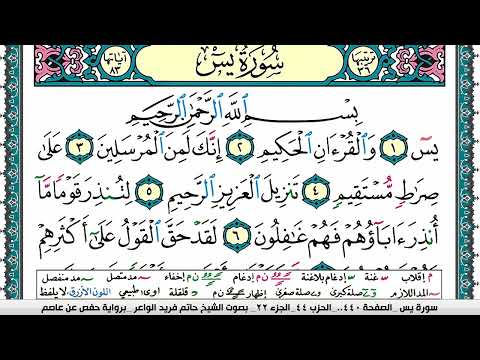 ترتيبها ٣٦ سُورَةُ يسٓ آياتها ٨٣
بِسۡمِ ٱللَّهِ ٱلرَّحۡمَٰنِ ٱلرَّحِيمِ
يسٓ ١ وَٱلۡقُرۡءَانِ ٱلۡحَكِيمِ ٢ إِنَّكَ لَمِنَ ٱلۡمُرۡسَلِينَ ٣ عَلَىٰ
صِرَٰطٖ مُّسۡتَقِيمٖ ٤ تَنزِيلَ ٱلۡعَزِيزِ ٱلرَّحِيمِ ٥ لِتُنذِرَ قَوۡمٗا مَّآ
أُنذِرَ ءَابَآؤُهُمۡ فَهُمۡ غَٰفِلُونَ ٦ لَقَدۡ حَقَّ ٱلۡقَوۡلُ عَلَىٰٓ أَكۡثَرِهِمۡ
م إقلاب غنة إدغام بلاغنة ن م إدغام إخفاء مد متصل مد منفصل
المد اللازم صلة كبرى صلة صغرى إظهار ن م قلقلة اوى: طبيعي اللون الأزرق: لا يلفظ
سورة يس _الصفحة ٤٤٠.. الحزب ٤٤_الجزء ٢٢_ بصوت الشيخ حاتم فريد الواعر _برواية حفص عن عاصم